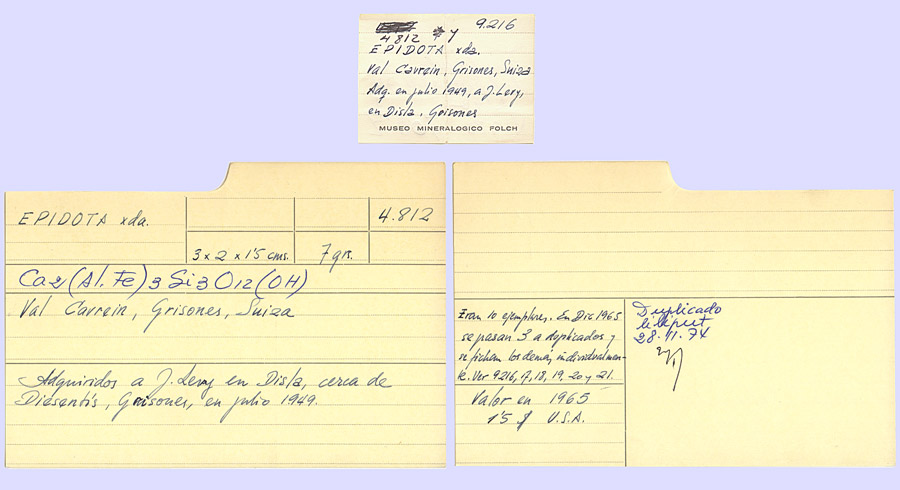 9.216
4812 *y
EPIDOTA xda.
Val Cavrein, Grisones, Suiza
Adq. en julio 1949, a J. Levy,
en Disla, Grisones
MUSEO MINERALOGICO FOLCH
EPIDOTA xda.
4.812
3 x 2 x 1'5 cms.
7 grs.
Ca2(Al.Fe)3Si3O12(OH)
Val Cavrein, Grisones, Suiza
Adquiridos a J. Levy en Disla, cerca de
Disentis, Grisones, en julio 1949.
Eran 10 ejemplares. En Dic 1965
se pasan 3 a duplicados y
se fichem los demás individualmen-
te. Ver 9216, 17, 18, 19, 20 y 21.
Valor en 1965
1'5 $ U.S.A.
Duplicado
liliput
28.11.74